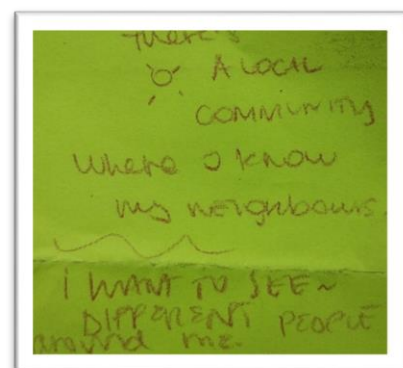 there's
A LOCAL
COMMUNITY
Where I know
my neighbours
I WANT TO SEE~
DIFFERENT PEOPLE
around me.